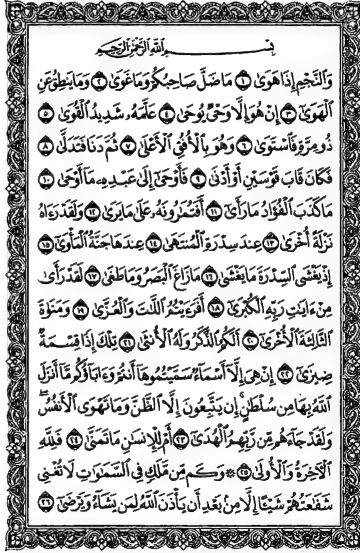 بِسْمِ اللَّهِ الرَّحْمَٰنِ الرَّحِيمِ
وَالنَّجْمِ إِذَا هَوَىٰ ١ مَا ضَلَّ صَاحِبُكُمْ وَمَا غَوَىٰ ٢ وَمَا يَنطِقُ عَنِ
الْهَوَىٰ ٣ إِنْ هُوَ إِلَّا وَحْيٌ يُوحَىٰ ٤ عَلَّمَهُ شَدِيدُ الْقُوَىٰ ٥
ذُو مِرَّةٍ فَاسْتَوَىٰ ٦ وَهُوَ بِالْأُفُقِ الْأَعْلَىٰ ٧ ثُمَّ دَنَا فَتَدَلَّىٰ ٨
فَكَانَ قَابَ قَوْسَيْنِ أَوْ أَدْنَىٰ ٩ فَأَوْحَىٰ إِلَىٰ عَبْدِهِ مَا أَوْحَىٰ ١٠
مَا كَذَبَ الْفُؤَادُ مَا رَأَىٰ ١١ أَفَتُمَارُونَهُ عَلَىٰ مَا يَرَىٰ ١٢ وَلَقَدْ رَآهُ
نَزْلَةً أُخْرَىٰ ١٣ عِندَ سِدْرَةِ الْمُنتَهَىٰ ١٤ عِندَهَا جَنَّةُ الْمَأْوَىٰ ١٥
إِذْ يَغْشَى السِّدْرَةَ مَا يَغْشَىٰ ١٦ مَا زَاغَ الْبَصَرُ وَمَا طَغَىٰ ١٧ لَقَدْ رَأَىٰ
مِنْ آيَاتِ رَبِّهِ الْكُبْرَىٰ ١٨ أَفَرَءَيْتُمُ اللَّاتَ وَالْعُزَّىٰ ١٩ وَمَنَوٰةَ
الثَّالِثَةَ الْأُخْرَىٰ ٢٠ أَلَكُمُ الذَّكَرُ وَلَهُ الْأُنثَىٰ ٢١ تِلْكَ إِذًا قِسْمَةٌ
ضِيزَىٰ ٢٢ إِنْ هِيَ إِلَّا أَسْمَاءٌ سَمَّيْتُمُوهَا أَنتُمْ وَءَابَاؤُكُم مَّا أَنزَلَ
اللَّهُ بِهَا مِن سُلْطَانٍ إِن يَتَّبِعُونَ إِلَّا الظَّنَّ وَمَا تَهْوَى الْأَنفُسُ ۖ
وَلَقَدْ جَاءَهُم مِّن رَّبِّهِمُ الْهُدَىٰ ٢٣ أَمْ لِلْإِنسَانِ مَا تَمَنَّىٰ ٢٤ فَلِلَّهِ
الْآخِرَةُ وَالْأُولَىٰ ٢٥ ۞ وَكَم مِّن مَّلَكٍ فِي السَّمَاوَاتِ لَا تُغْنِي
شَفَاعَتُهُمْ شَيْئًا إِلَّا مِن بَعْدِ أَن يَأْذَنَ اللَّهُ لِمَن يَشَاءُ وَيَرْضَىٰ ٢٦